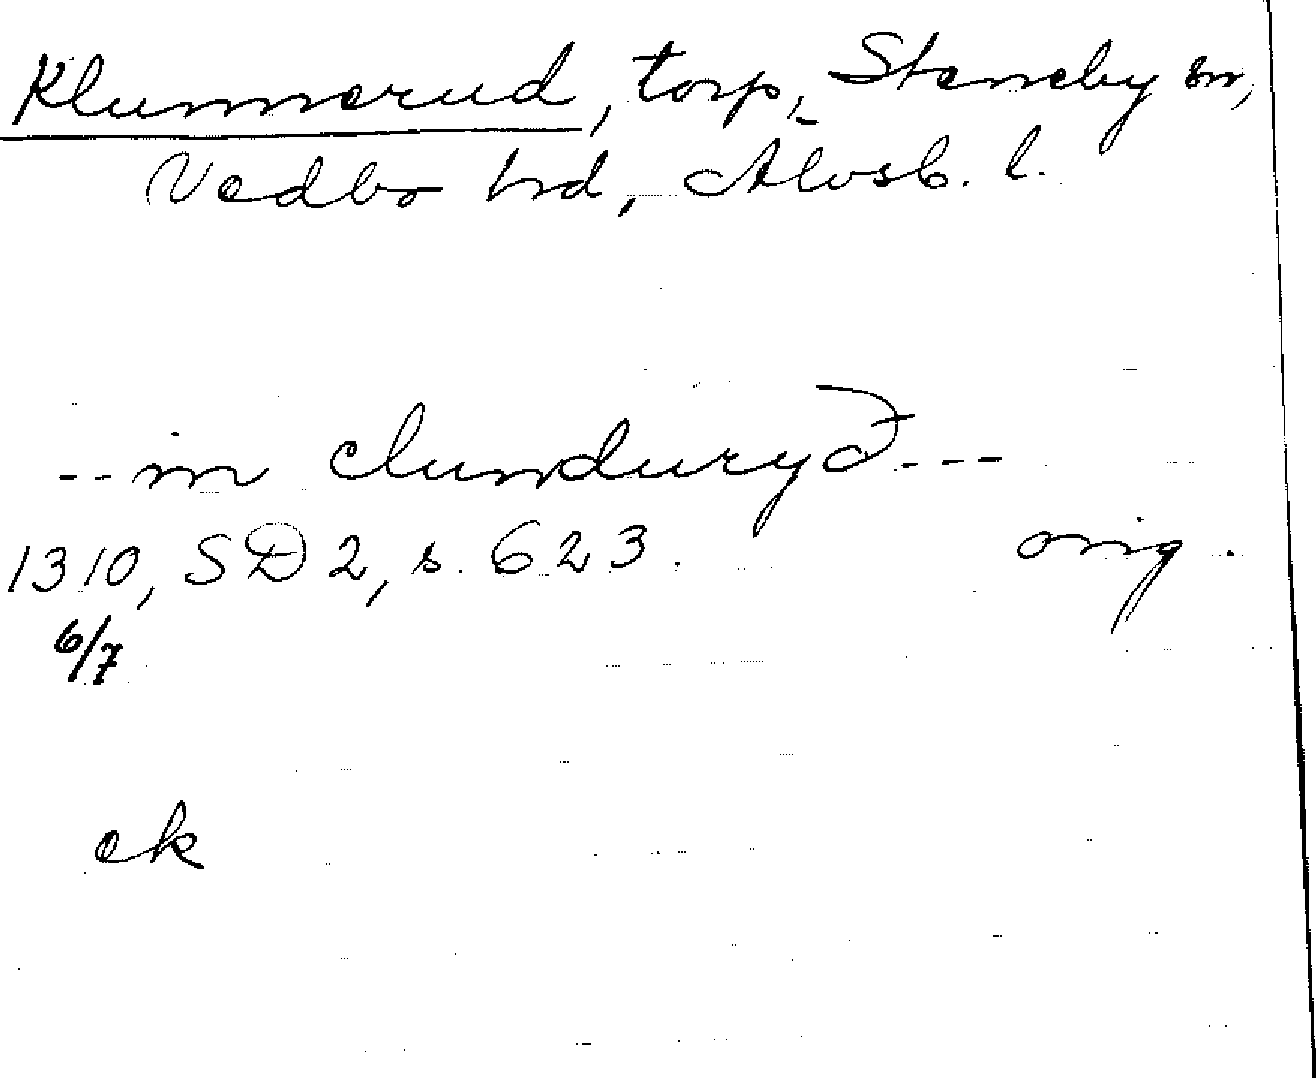 Klummerud, torp, Steneby sn,
Vedbo hd, Älvsb. l.
--in clunduryd---
1310, SD 2, s. 623. orig.
6/7
ek